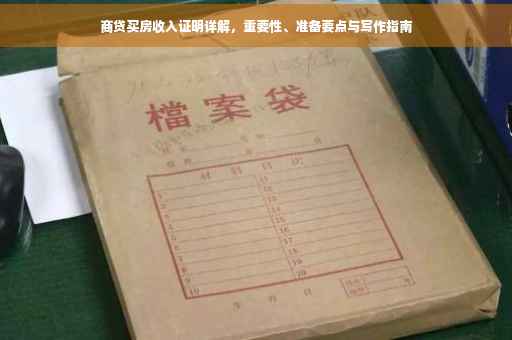 商贷买房收入证明详解，重要性、准备要点与写作指南
檔案袋
材料目次
1 11
2 12
3 13
4 14
5 15
6 16
7 17
8 18
9 19
10 20
年 月 日